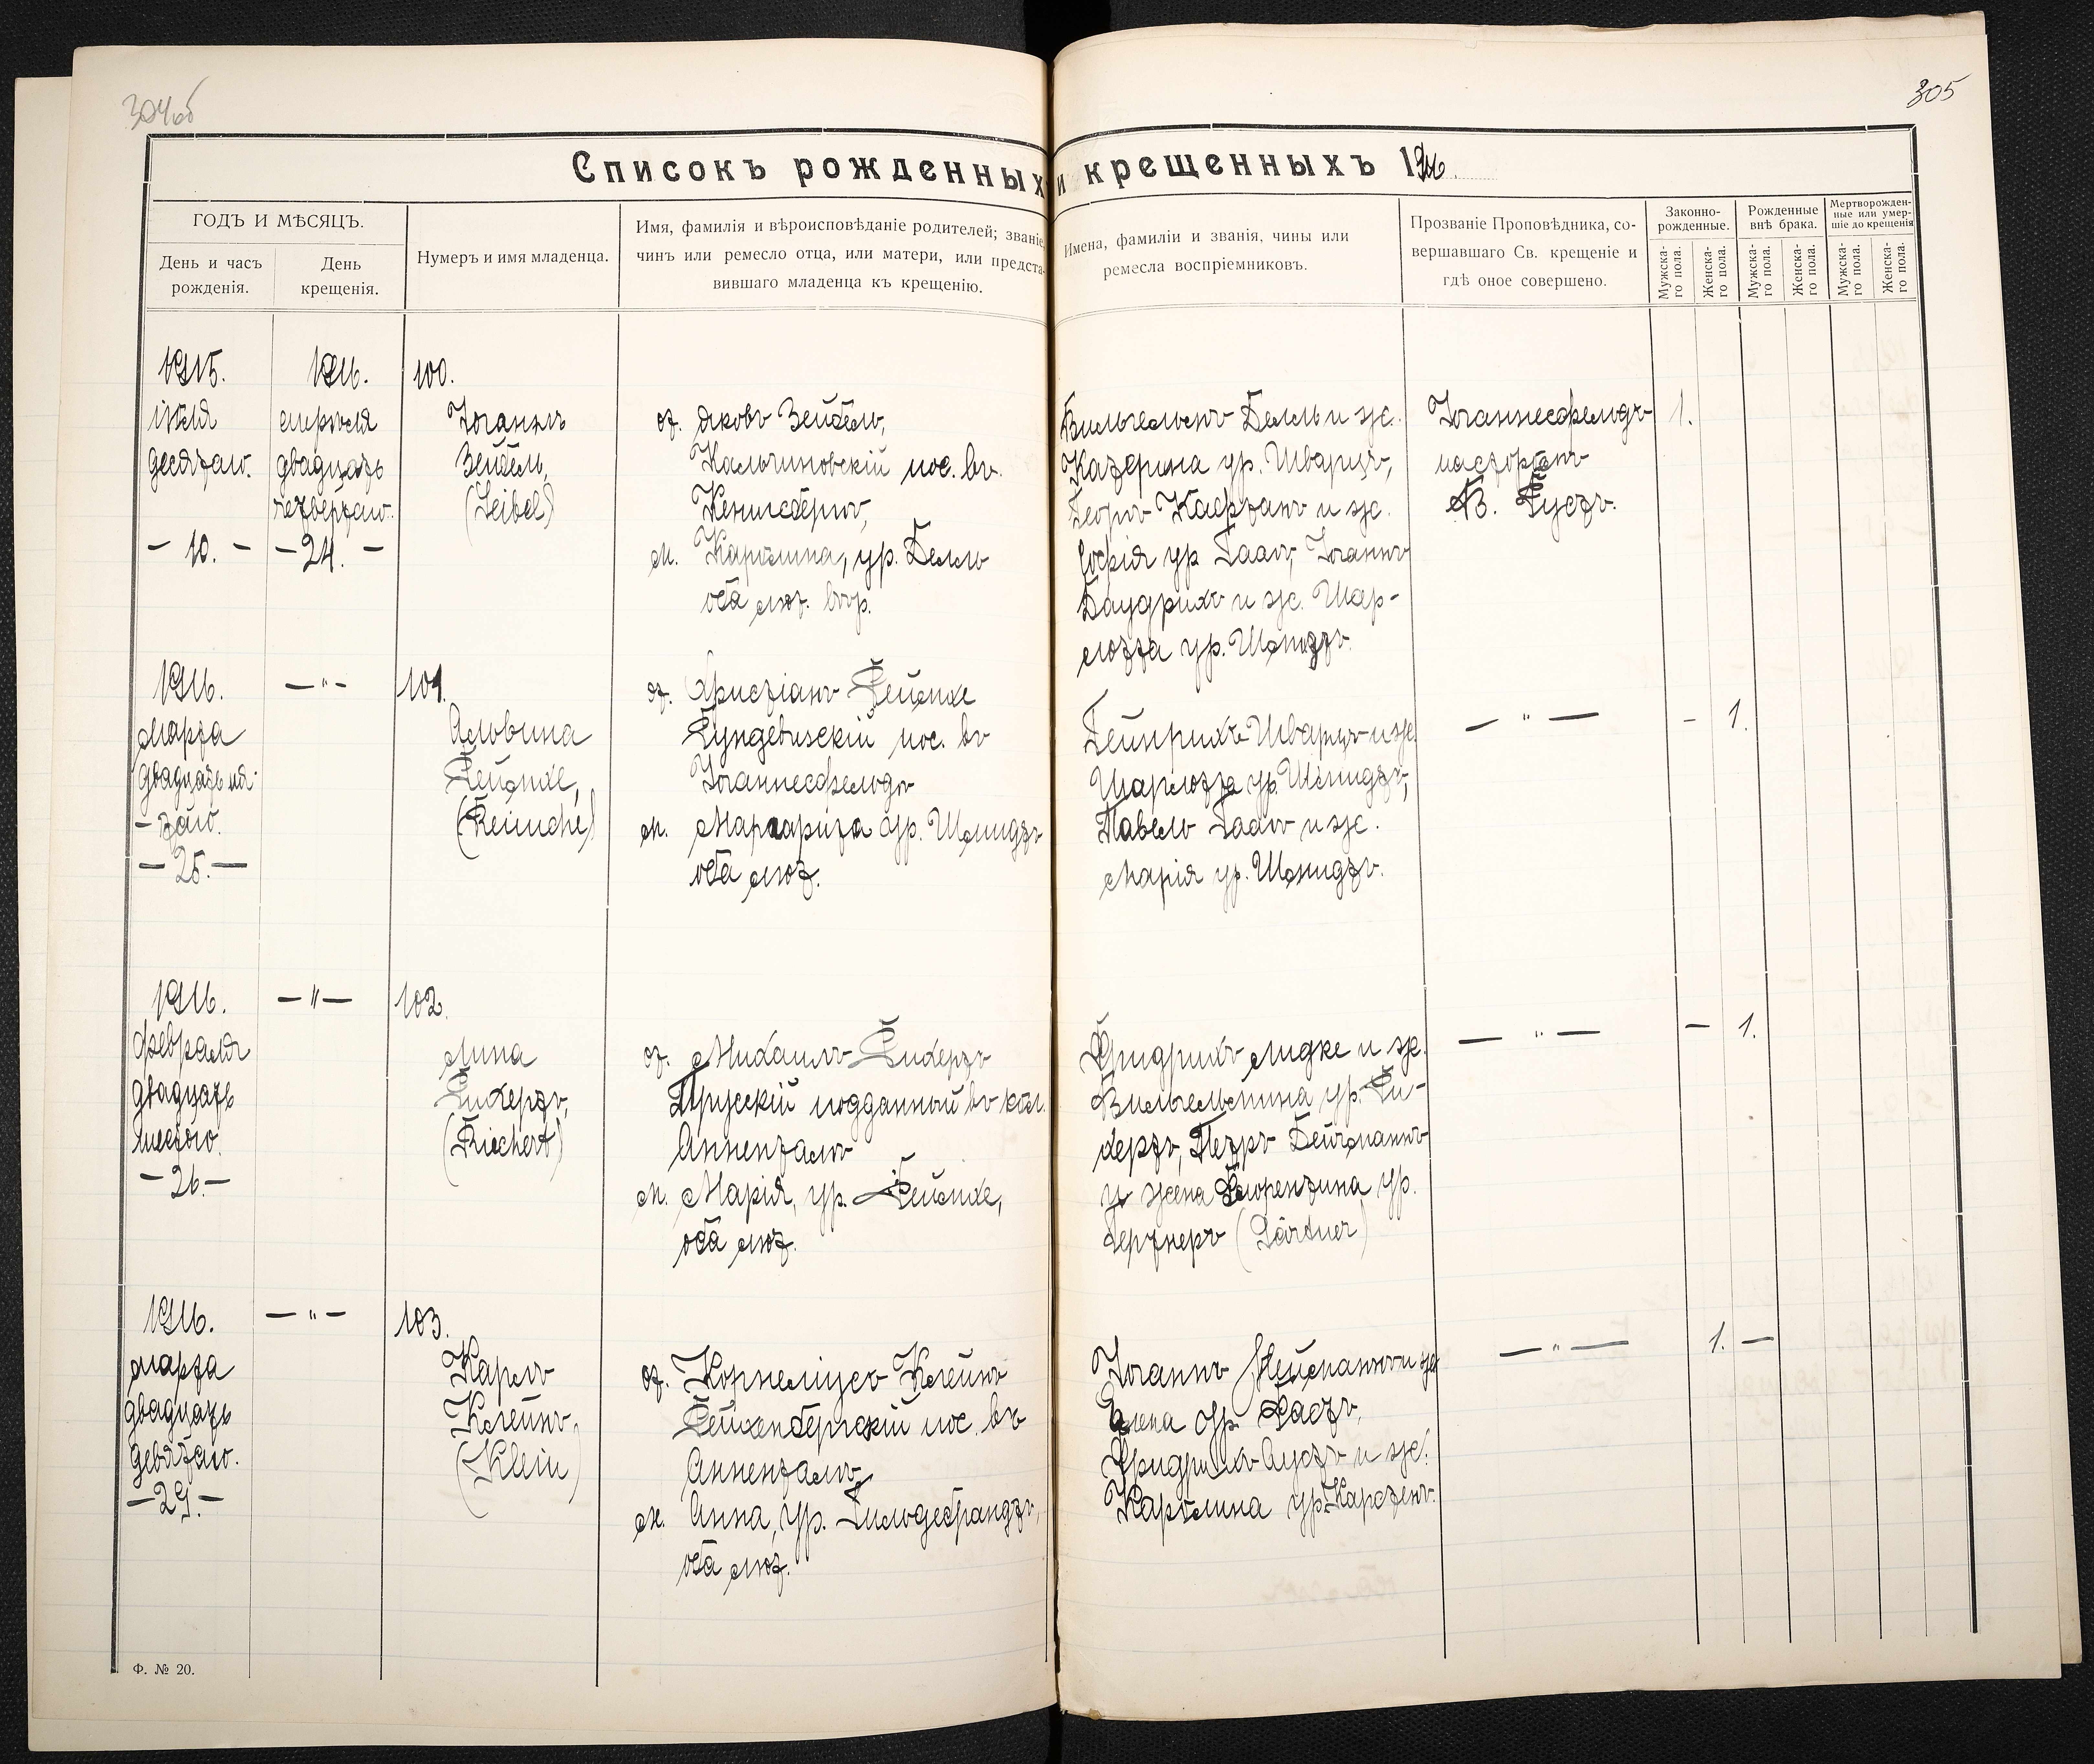 304об
305
Списокъ рожденныхъ и крещенныхъ 1916
ГОДЪ И МѢСЯЦЪ.
День и часъ
рожденія.
День
крещенія.
Нумеръ и имя младенца.
Имя, фамилія и вѣроисповѣданіе родителей; званіе,
чинъ или ремесло отца, или матери, или предста-
вившаго младенца къ крещенію.
Имена, фамиліи и званія, чины или
ремесла воспріемниковъ.
Прозваніе Проповѣдника, со-
вершавшаго Св. крещеніе и
гдѣ оное совершено.
Законно-
рожденные.
Рожденные
внѣ брака.
Мертворожден-
ные или умер-
шіе до крещенія
Мужска-
го пола.
Женска-
го пола.
Мужска-
го пола.
Женска-
го пола.
Мужска-
го пола.
Женска-
го пола.
1915.
десятаго.
- 10. -
1916.
апрѣля
двадцать
четвертаго.
- 24. -
100.
Іоганнъ
Зейбель,
(Seibel)
от. Яковъ Зейбель,
пос. въ
Кенигсбергѣ,
м. Каролина, ур. Белль
оба лют. вѣр.
Вильгельмъ Белль и ж.
Катерина ур. Шварцъ,
Георгъ и ж.
Софія ур. Гаагъ, Іоганнъ
Баудрихъ и ж. Шар-
лотта ур. Шмидтъ.
Іоганнесфельдъ
пасторомъ
1.
1916.
марта
двадцать пя-
- таго.
- 25. -
- " -
101.
Альвина
Реймхе,
(Reimche)
от. Христіанъ Реймхе
пос. въ
Іоганнесфельдѣ
м. Маргарита ур. Шмидтъ
оба лют.
Гейнрихъ Шварцъ и ж.
Шарлотта ур. Шмидтъ,
Павелъ Гаагъ и ж.
Марія ур. Шмидтъ.
- " -
- 1.
1916.
февраля
двадцать
шестого.
- 26. -
- " -
102.
Лина
Рихертъ,
(Riechert)
от. Михаилъ Рихертъ
Прусскій подданный въ кол.
Анненталъ
м. Марія, ур. Реймхе,
оба лют.
Фридрихъ Лидке и ж.
Вильгельмина ур. Ри-
хертъ, Петръ Бейтманнъ
и жена Флорентина ур.
Гертнеръ (Gärtner)
- " -
- 1.
1916.
марта
двадцать
девятаго.
- 29. -
- " -
103.
Карлъ
Клейнъ,
(Klein)
от. Корнеліусъ Клейнъ
Рейхенбергскій пос. въ
Анненталъ,
м. Анна, ур. Гильдебрандтъ,
оба лют.
Іоганнъ Нейманнъ и ж.
Елена ур. Фастъ,
Фридрихъ Аустъ и ж.
Каролина ур. Карстенъ.
- " -
1. -
Ф. № 20.